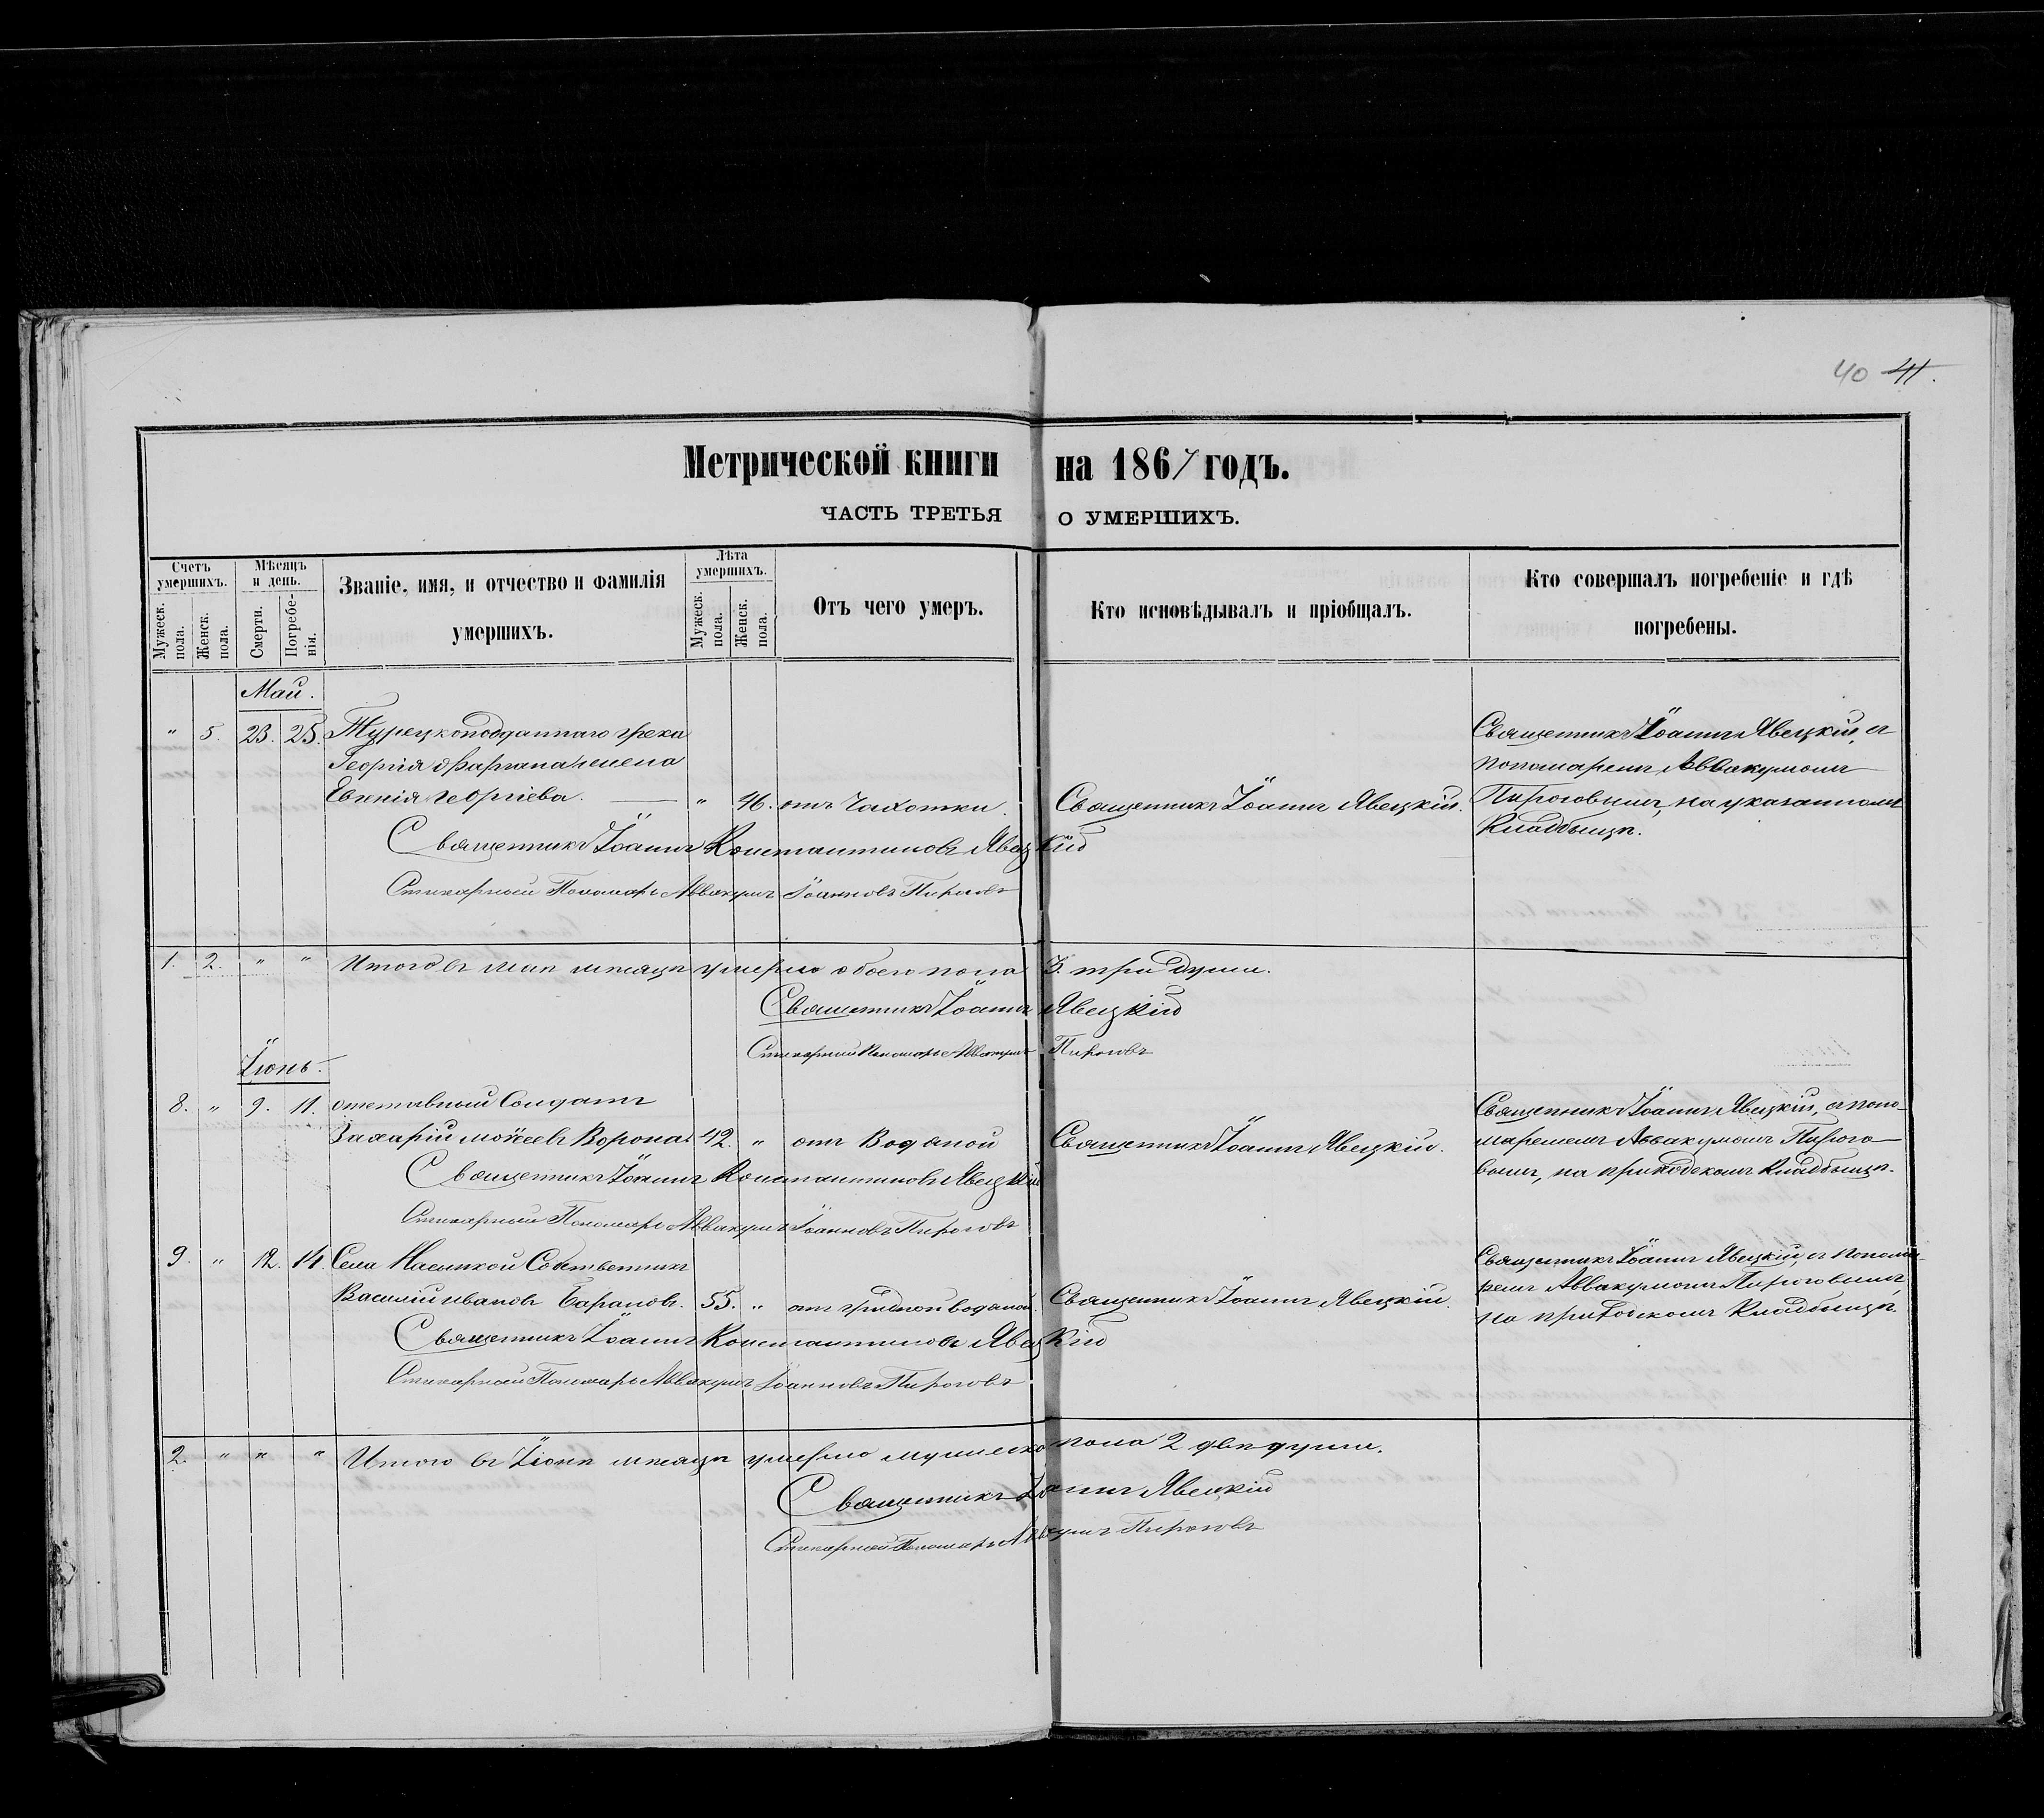 40 41.
Метрической книги на 1867 годъ.
ЧАСТЬ ТРЕТЬЯ О УМЕРШИХЪ.
Счетъ умершихъ.
Мужеск. пола.
Женск. пола.
Мѣсяцъ и день.
Смерти.
Погребенія.
Званіе, имя, и отчество и фамилія умершихъ.
Лѣта умершихъ.
Мужеск. пола.
Женск. пола.
Отъ чего умеръ.
Кто исповѣдывалъ и пріобщалъ.
Кто совершалъ погребеніе и гдѣ погребены.
Май.
" 5. 23. 25. Турецкоподданнаго грека
Георгія жена
Евгенія Георгіева. " 46. отъ Чахотки. Священникъ Іоаннъ Явецкій.
Священникъ Іоаннъ Явецкій, съ
пономаремъ Аввакумомъ
Пироговымъ, на указанномъ
Кладбищѣ.
Священникъ Іоаннъ Константиновъ Явецкій
Стихарный Пономарь Аввакумъ Іоанновъ Пироговъ
1. 2. " " Итого въ маѣ мѣсяцѣ умерло обоего пола 3. три души.
Священникъ Іоаннъ Явецкій
Стихарный Пономарь Аввакумъ Пироговъ
Іюнь.
8. " 9. 11. отставный Солдатъ
Захарій моѵсеевъ Ворона 42. " отъ Водяной Священникъ Іоаннъ Явецкій.
Священникъ Іоаннъ Явецкій, съ поно-
маремъ Аввакумомъ Пирого-
вымъ, на приходскомъ Кладбищѣ.
Священникъ Іоаннъ Константиновъ Явецкій
Стихарный Пономарь Аввакумъ Іоанновъ Пироговъ
9. " 12. 14. Села Собственникъ
Василій ивановъ Барановъ. 55. " отъ грудной водяной. Священникъ Іоаннъ Явецкій.
Священникъ Іоаннъ Явецкій, съ понома-
ремъ Аввакумомъ Пироговымъ,
на приходскомъ Кладбищѣ.
Священникъ Іоаннъ Константиновъ Явецкій
Стихарный Пономарь Аввакумъ Іоанновъ Пироговъ
2. " " " Итого въ Іюнѣ мѣсяцѣ умерло мужеско пола 2 двѣ души.
Священникъ Іоаннъ Явецкій
Стихарный Пономарь Аввакумъ Пироговъ